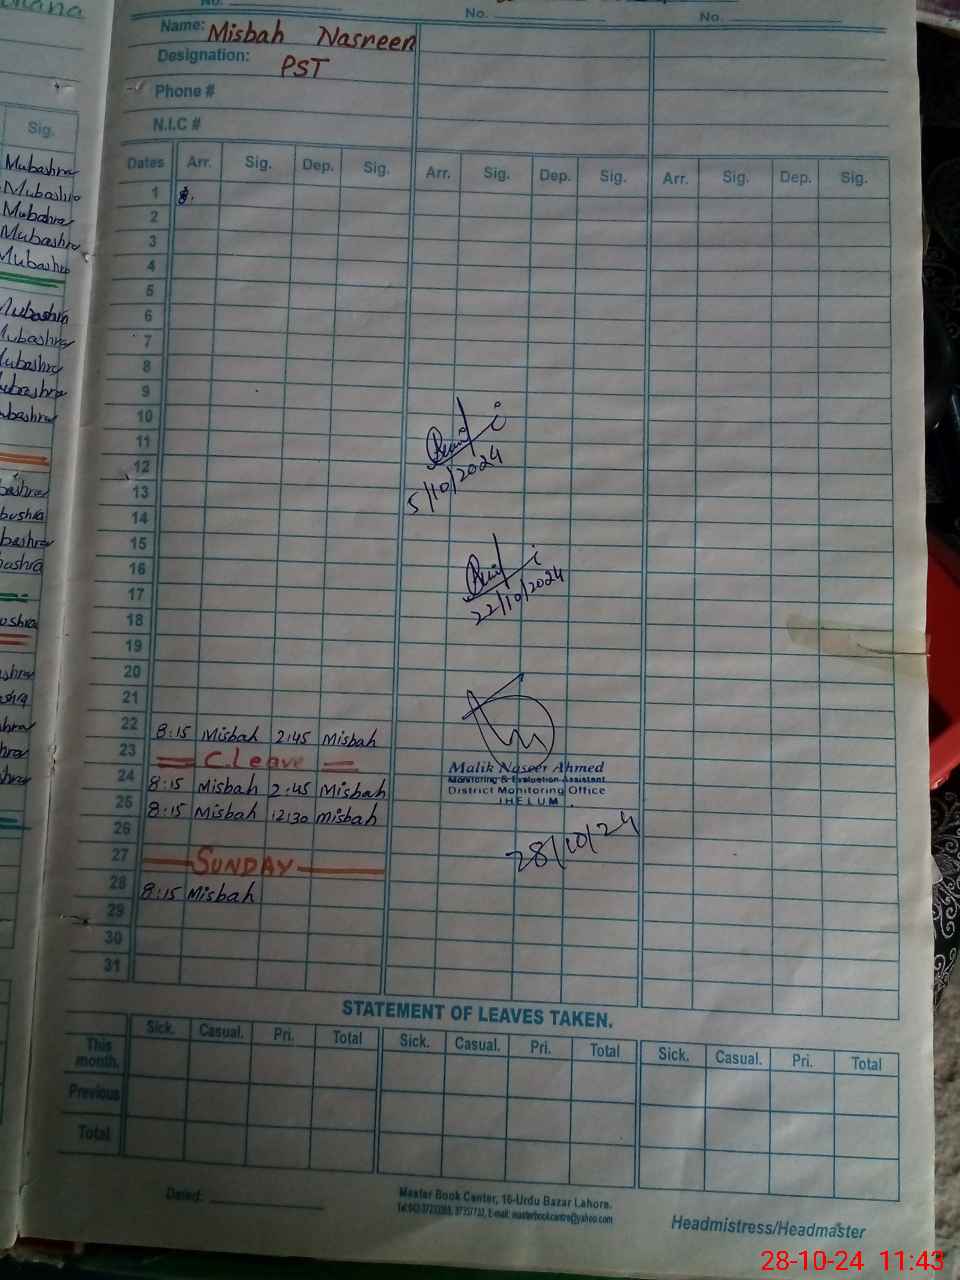 No.
No.
No.
Name: Misbah Nasreen
Designation: PST
Phone #
N.I.C #
Sig.
Mubashra
Mubashra
Mubahra
Mubashra
Mubashra
Mubashra
Mubashra
Mubashra
Mubashra
Mubashra
Dates Arr. Sig. Dep. Sig. Arr. Sig. Dep. Sig. Arr. Sig. Dep. Sig.
1 8.
2
3
4
5
6
7
8
9
10
11
12
5/10/2024
13
14
15
16
17
22/10/2024
18
19
20
21
22 8:15 Misbah 2:45 Misbah
23 C.Leave
24 8:15 Misbah 2:45 Misbah
25 8:15 Misbah 12:30 Misbah
26
27 SUNDAY
28 8:15 Misbah
29
30
31
Malik Naseer Ahmed
Monitoring & Evaluation Assistant
District Monitoring Office
JHELUM
28/10/24
STATEMENT OF LEAVES TAKEN.
Sick. Casual. Pri. Total Sick. Casual. Pri. Total Sick. Casual. Pri. Total
This month.
Previous
Total
Dated:
Master Book Center, 16-Urdu Bazar Lahore.
Headmistress/Headmaster
28-10-24 11:43